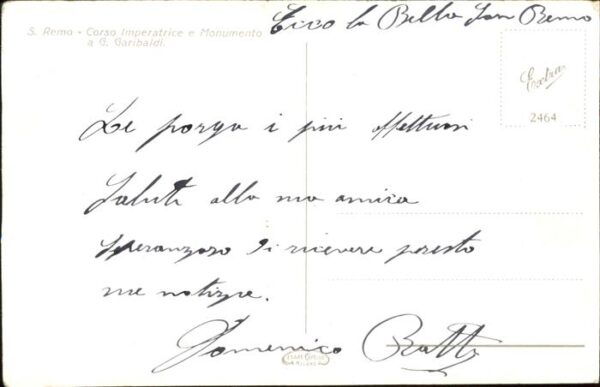 S. Remo - Corso Imperatrice e Monumento
a G. Garibaldi.
Ecco la Bella San Remo
Extra
2464
Le porga i più affettuosi
Saluti alla mia amica
Speranzoso di ricevere presto
sue notizie.
Domenico